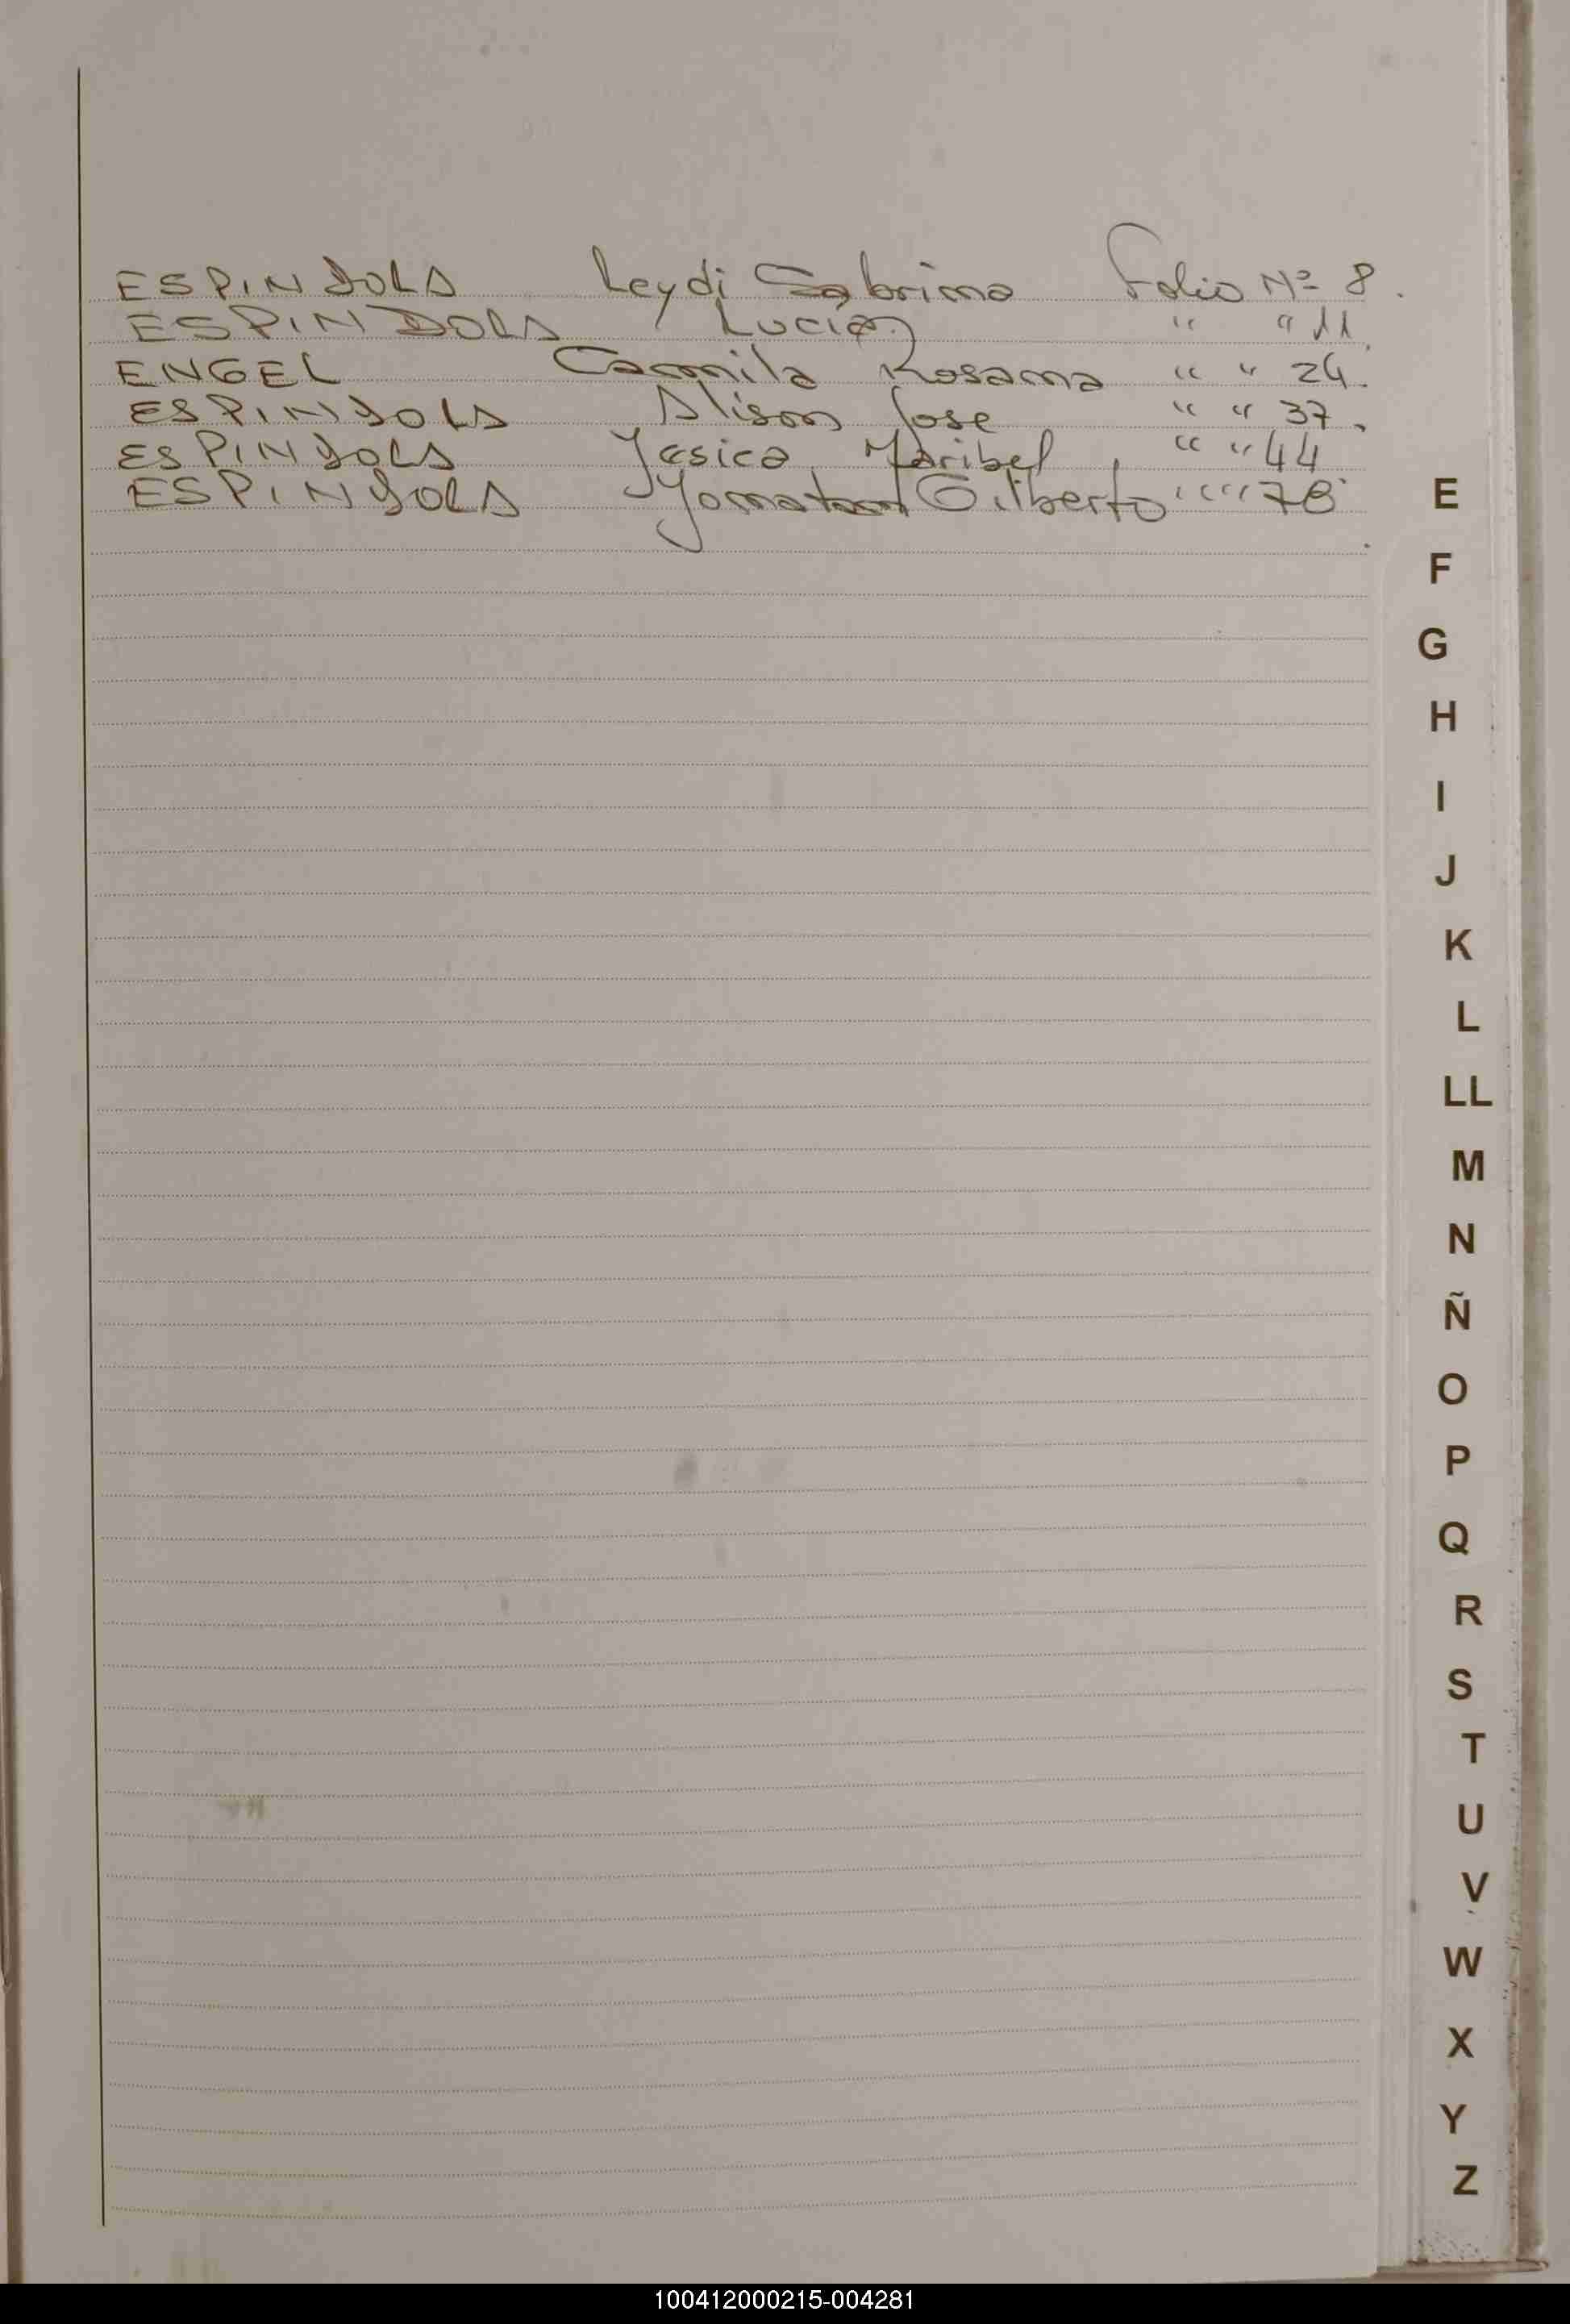 ESPINDOLA Leydi Sabrina Folio Nº 8.
ESPINDOLA Lucia " " 11
ENGEL Camila Rosana " " 24.
ESPINDOLA Alison Jose " " 37.
ESPINDOLA Yesica Maribel " " 44
ESPINDOLA Yonatan Gilberto " " 78
E
F
G
H
I
J
K
L
LL
M
N
Ñ
O
P
Q
R
S
T
U
V
W
X
Y
Z
100412000215-004281